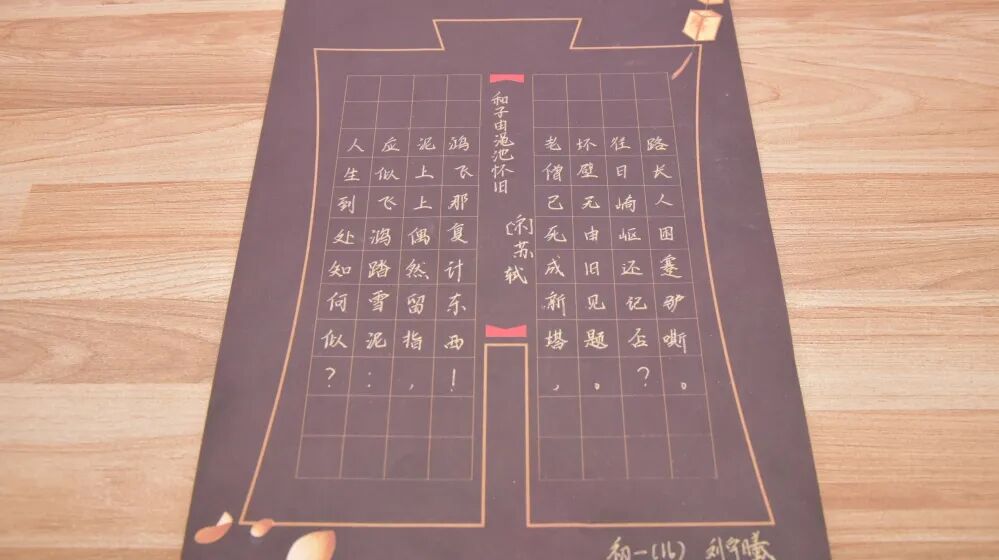 和子由渑池怀旧
[宋]苏轼
人生到处知何似?
应似飞鸿踏雪泥:
泥上上偶然留指,
鸿飞那复计东西!
老僧已死成新塔,
坏壁无由旧见题。
往日崎岖还记否?
路长人困蹇驴嘶。
初一(16) 刘宇曦